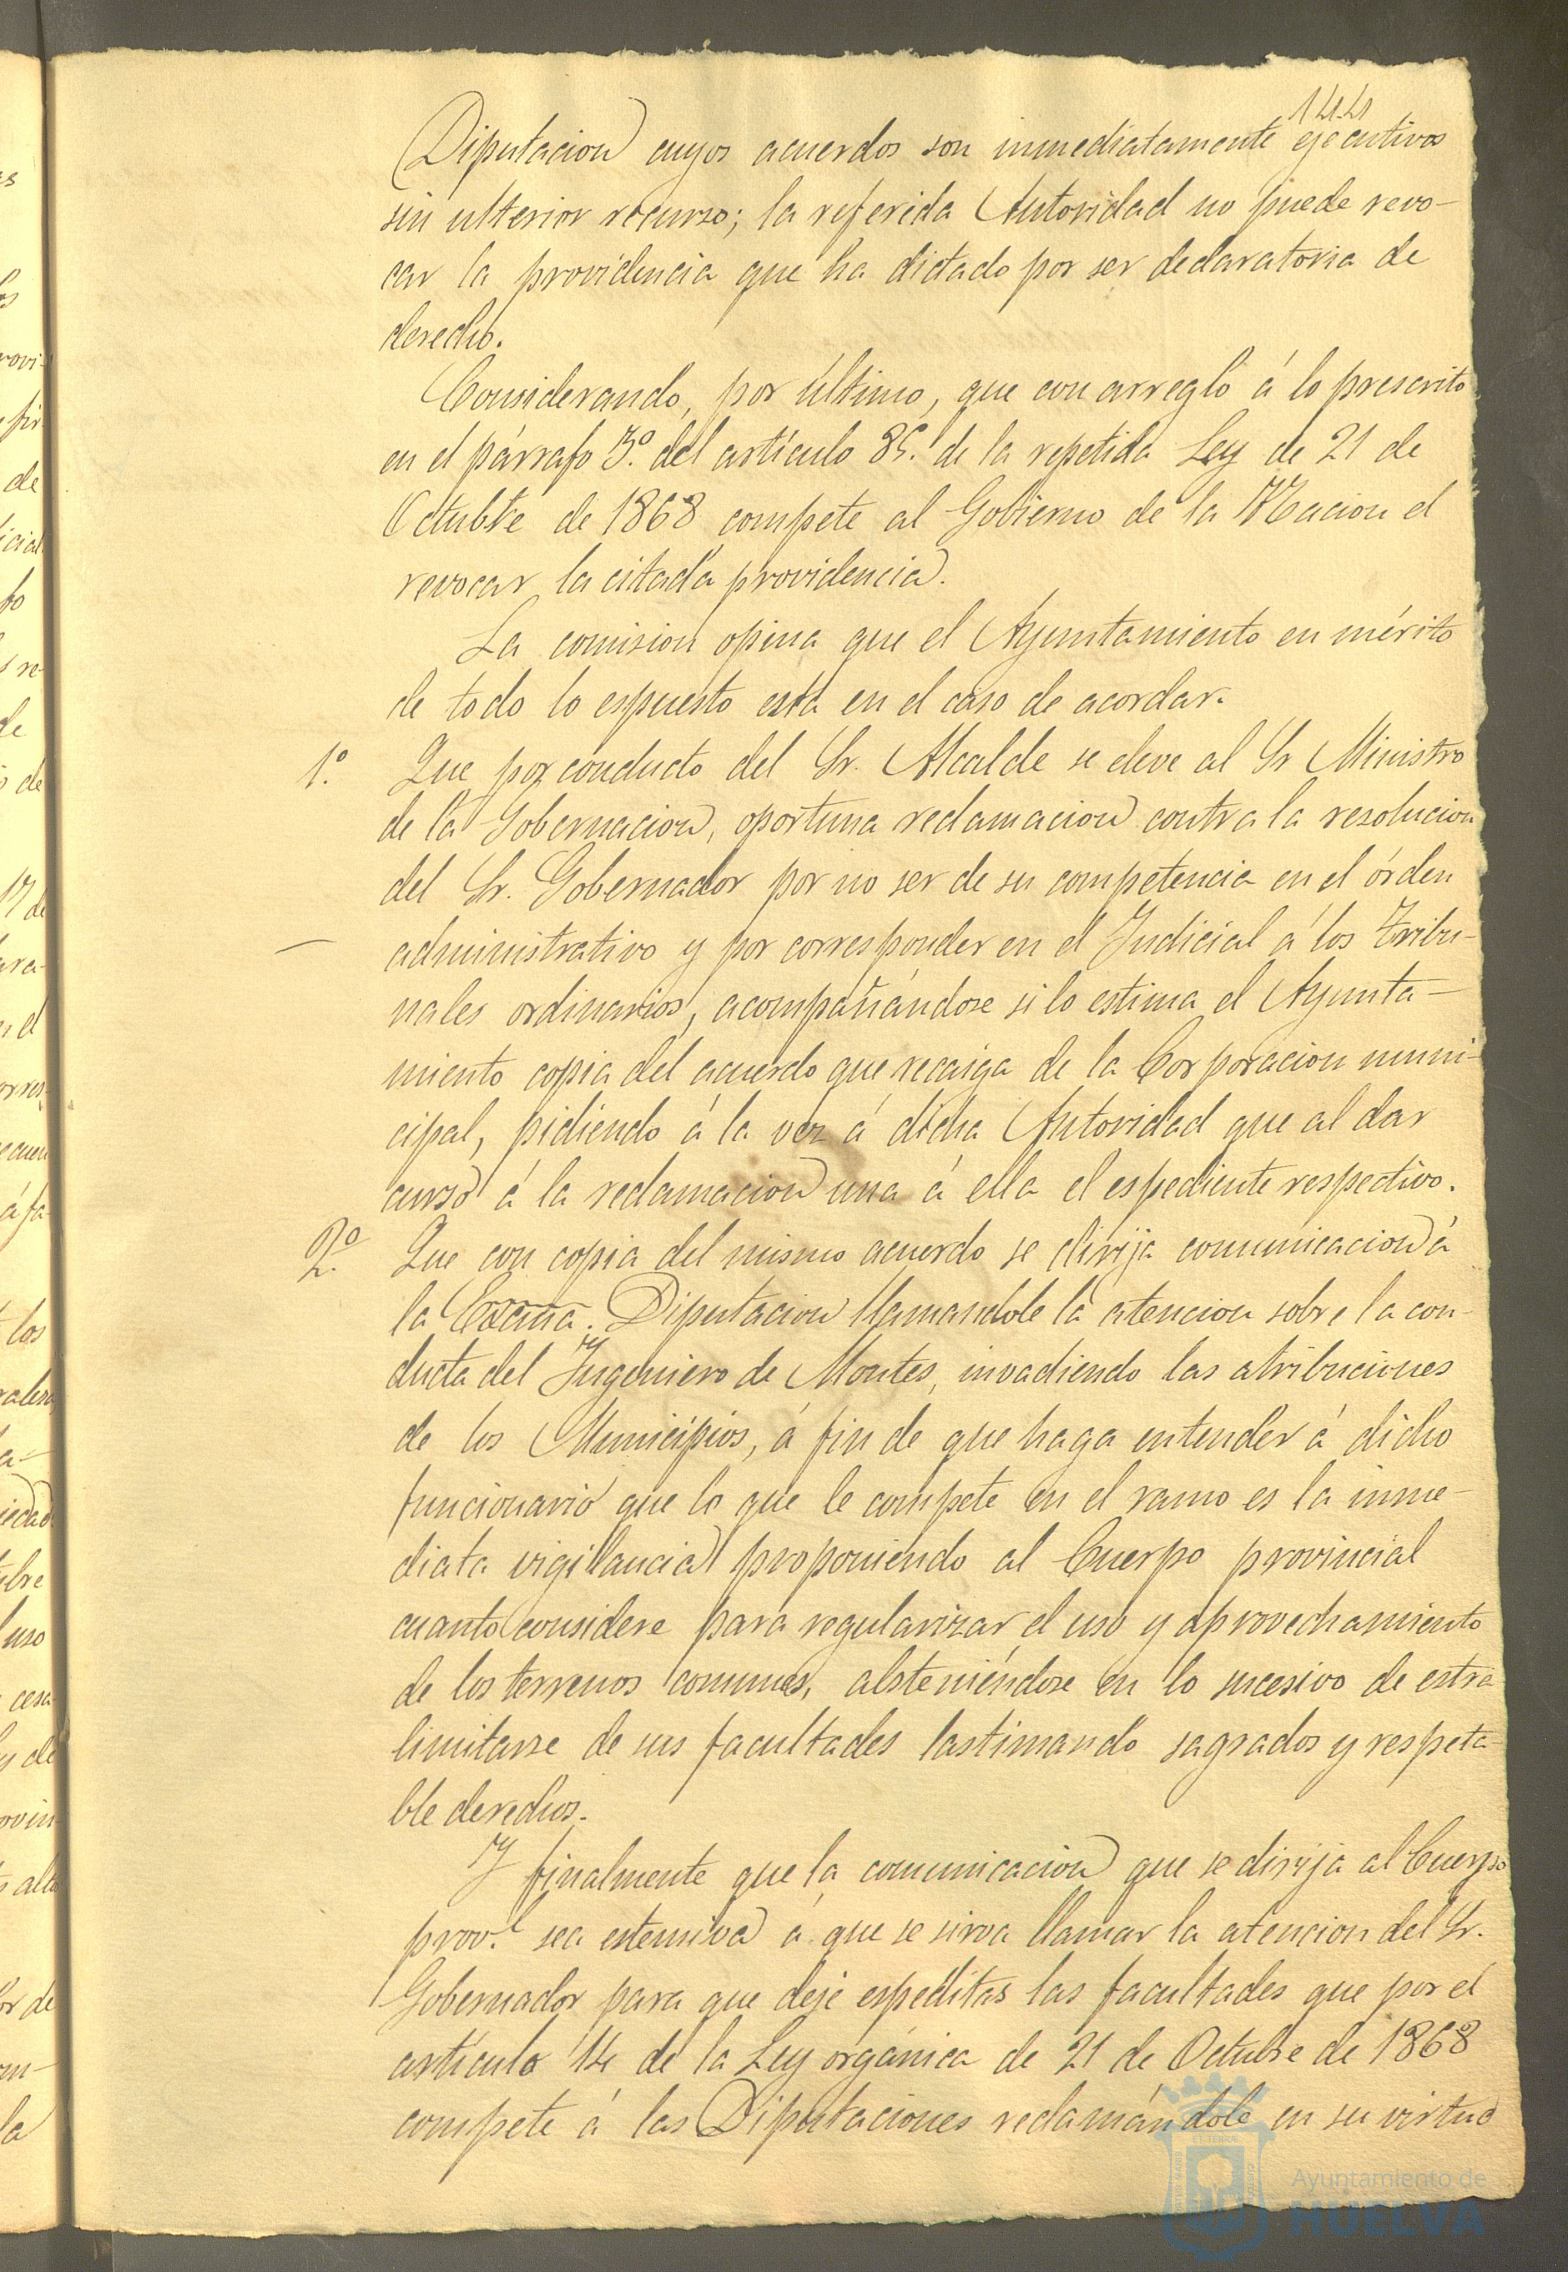 144
Diputacion cuyos acuerdos son inmediatamente ejecutivos
sin ulterior recurso; la referida Autoridad no puede revo-
car la providencia que ha dictado por ser declaratoria de
derecho.
Considerando, por último, que con arreglo á lo prescrito
en el párrafo 3º. del artículo 85. de la repetida Ley de 21 de
Octubre de 1868 compete al Gobierno de la Nacion el
revocar la citada providencia.
La comision opina que el Ayuntamiento en mérito
de todo lo espuesto está en el caso de acordar.
1º. Que por conducto del Sr. Alcalde se eleve al Sr Ministro
de la Gobernacion, oportuna reclamacion contra la resolucion
del Sr. Gobernador por no ser de su competencia en el órden
administrativo y por corresponder en el Judicial á los Tribu-
nales ordinarios, acompañándose si lo estima el Ayunta-
miento copia del acuerdo que recaiga de la Corporacion muni-
cipal, pidiendo á la vez á dicha Autoridad que al dar
curso á la reclamacion una á ella el espediente respectivo.
2º. Que con copia del mismo acuerdo se dirija comunicacion á
la Excma. Diputacion llamandole la atencion sobre la con-
ducta del Ingeniero de Montes, invadiendo las atribuciones
de los Municipios, á fin de que haga entender á dicho
funcionario que lo que le compete en el ramo es la inme-
diata vigilancia proponiendo al Cuerpo provincial
cuanto considere para regularizar el uso y aprovechamiento
de los terrenos comunes, absteniéndose en lo sucesivo de estra
limitarse de sus facultades lastimando sagrados y respeta-
ble derechos.
Y finalmente que la comunicacion que se dirija al Cuerpo
prov.l sea estensiva á que se sirva llamar la atencion del Sr.
Gobernador para que deje espeditas las facultades que por el
artículo 14 de la Ley orgánica de 21 de Octubre de 1868
compete á las Diputaciones reclamándole en su virtud
Ayuntamiento de
HUELVA